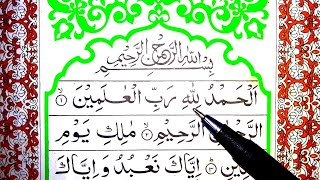 بِسْمِ اللّٰهِ الرَّحْمٰنِ الرَّحِيْمِ
اَلْحَمْدُ لِلّٰهِ رَبِّ الْعٰلَمِيْنَ ۙ۱
الرَّحْمٰنِ الرَّحِيْمِ ۙ۲ مٰلِكِ يَوْمِ
الدِّيْنِ ؕ۳ اِيَّاكَ نَعْبُدُ وَ اِيَّاكَ